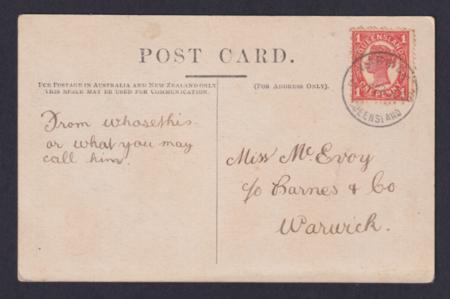 POST CARD.
FOR POSTAGE IN AUSTRALIA AND NEW ZEALAND ONLY
THIS SPACE MAY BE USED FOR COMMUNICATION.
(FOR ADDRESS ONLY).
From whosethis
or what you may
call him.
1 QUEENSLAND 1
QUEENSLAND
Miss McEvoy
c/o Barnes & Co
Warwick.